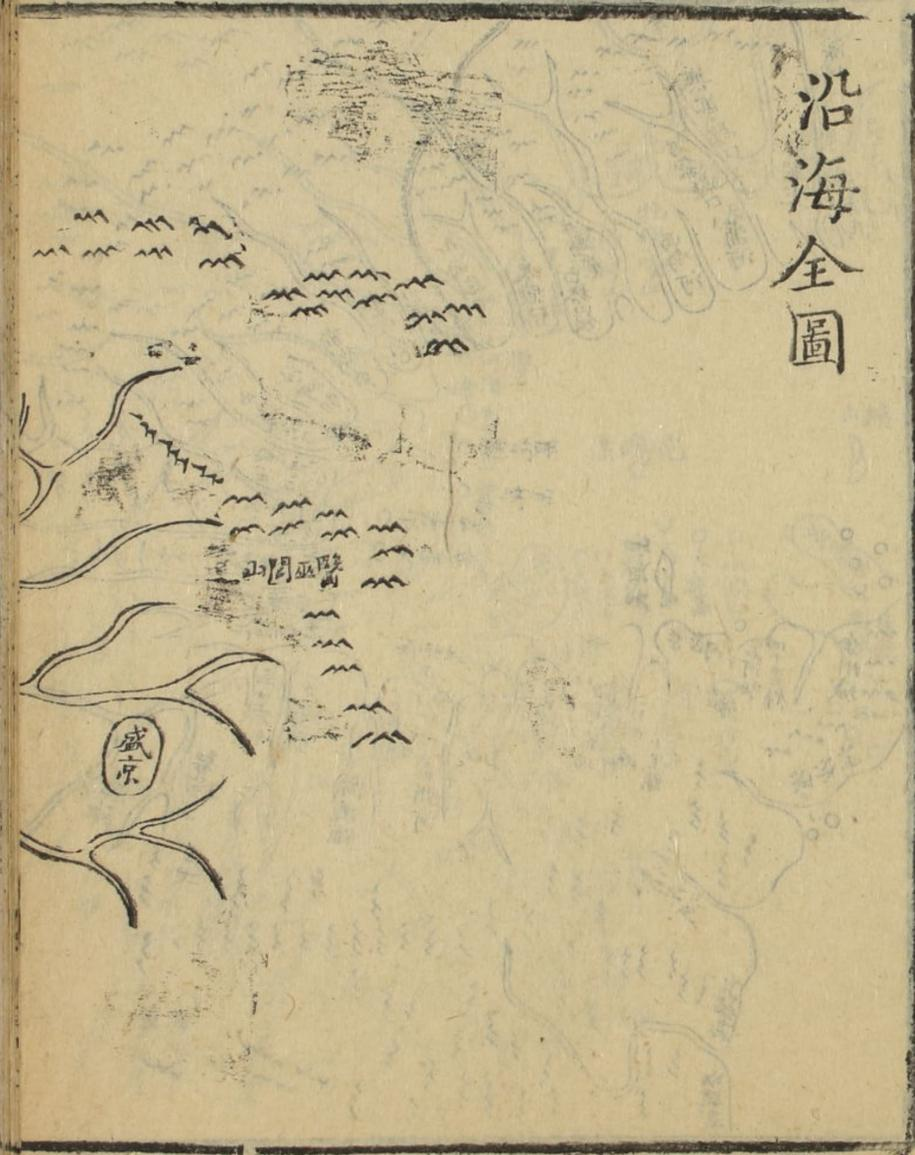 沿海全圖
醫巫閭山
盛京